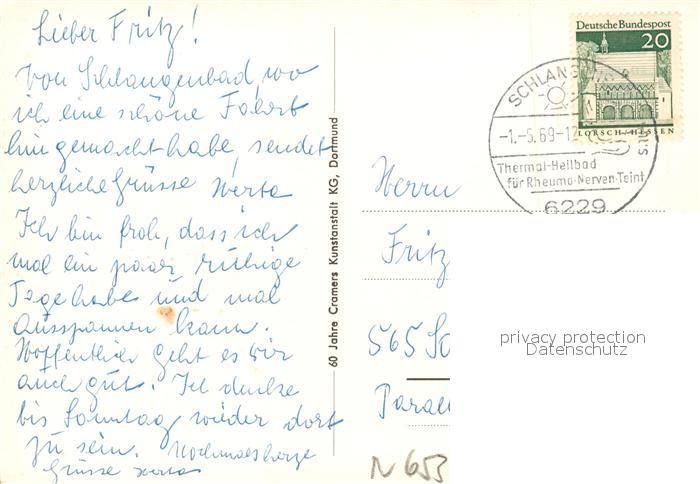 Lieber Fritz!
Von Schlangenbad, wo
ich eine schöne Fahrt
hingemacht habe, sendet
herzliche Grüsse Herta
Ich bin froh, dass ich
mal ein paar ruhige
Tage habe und mal
ausspannen kann.
Hoffentlich geht es Dir
auch gut. Ich denke
bis Sonntag wieder dort
zu sein. Nochmals herzl.
Grüsse Herta
60 Jahre Cramers Kunstanstalt KG, Dortmund
Deutsche Bundespost
20
LORSCH/HESSEN
SCHLANGENBAD
-1.-5.69-12
Thermal-Heilbad
für Rheuma-Nerven-Teint
6229
Herrn
Fritz
565 So
Parall
privacy protection
Datenschutz
N 653